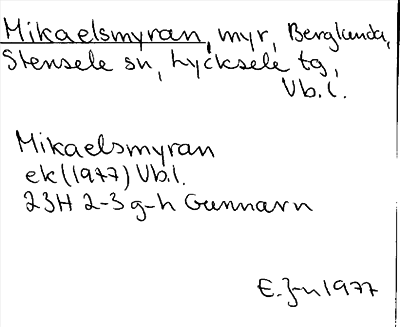 Mikaelsmyran, myr, Berglunda,
Stensele sn, Lycksele tg,
Vb.l.
Mikaelsmyran
ek (1977) Vb.l.
23H 2-3 g-h Gunnarn
E. J-n 1977